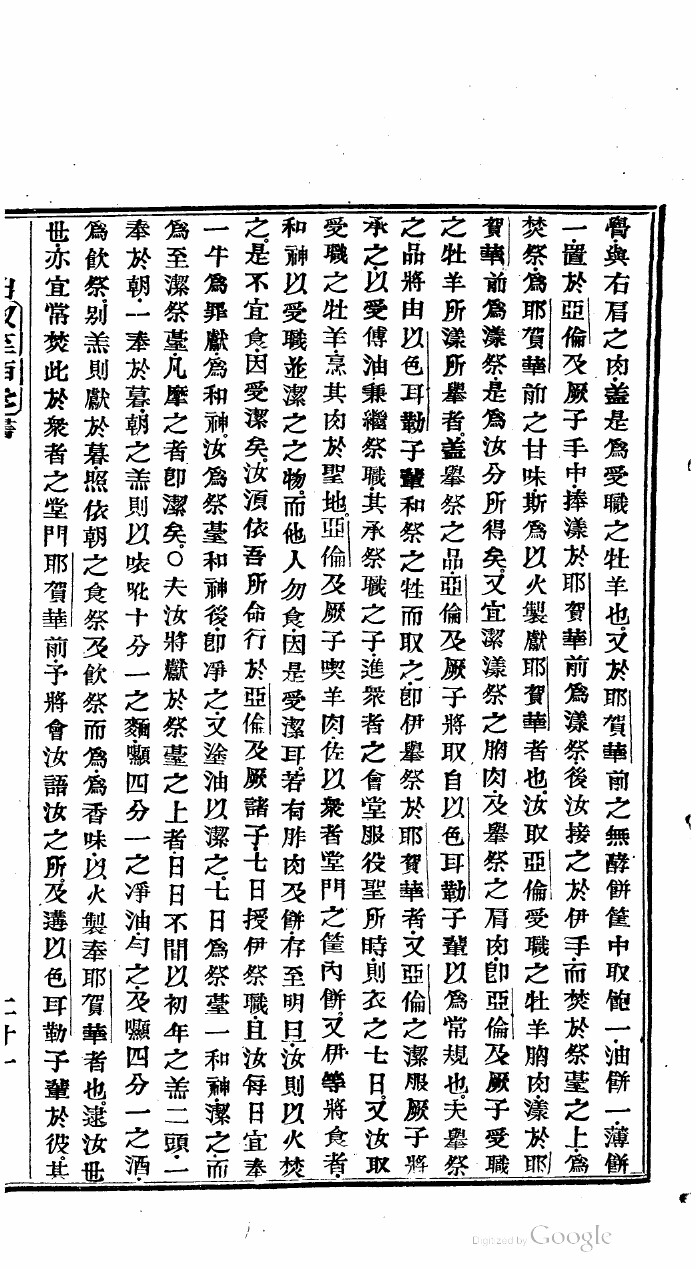 膋與右肩之肉蓋是爲受職之牡羊也又於耶賀華前之無酵餅筐中取飽一油餅一薄餅
一置於亞倫及厥子手中捧漾於耶賀華前爲漾祭後汝接之於伊手而焚於祭臺之上爲
焚祭爲耶賀華前之甘味斯爲以火製獻耶賀華者也汝取亞倫受職之牡羊胸肉漾於耶
賀華前爲漾祭是爲汝分所得矣又宜潔漾祭之胸肉及舉祭之肩肉卽亞倫及厥子受職
之牡羊所漾所舉者蓋舉祭之品亞倫及厥子將取自以色耳勒子輩以爲常規也夫舉祭
之品將由以色耳勒子輩和祭之牲而取之卽伊舉祭於耶賀華者又亞倫之潔服厥子將
承之以受傅油秉繼祭職其承祭職之子進衆者之會堂服役聖所時則衣之七日又汝取
受職之牡羊烹其肉於聖地亞倫及厥子喫羊肉佐以衆者堂門之筐內餅又伊等將食者
和神以受職並潔之之物而他人勿食因是受潔耳若有胙肉及餅存至明旦汝則以火焚
之是不宜食因受潔矣汝須依吾所命行於亞倫及厥諸子七日授伊祭職且汝每日宜奉
一牛爲罪獻爲和神汝爲祭臺和神後卽凈之又塗油以潔之七日爲祭臺一和神潔之而
爲至潔祭臺凡摩之者卽潔矣○夫汝將獻於祭臺之上者日日不間以初年之羔二頭一
奉於朝一奉於暮朝之羔則以㕆吪十分一之麵㘔四分一之凈油勻之及㘔四分一之酒
爲飲祭别羔則獻於暮照依朝之食祭及飲祭而爲爲香味以火製奉耶賀華者也逮汝世
世亦宜常焚此於衆者之堂門耶賀華前予將會汝語汝之所及遘以色耳勒子輩於彼其
二十一
Digitized by Google